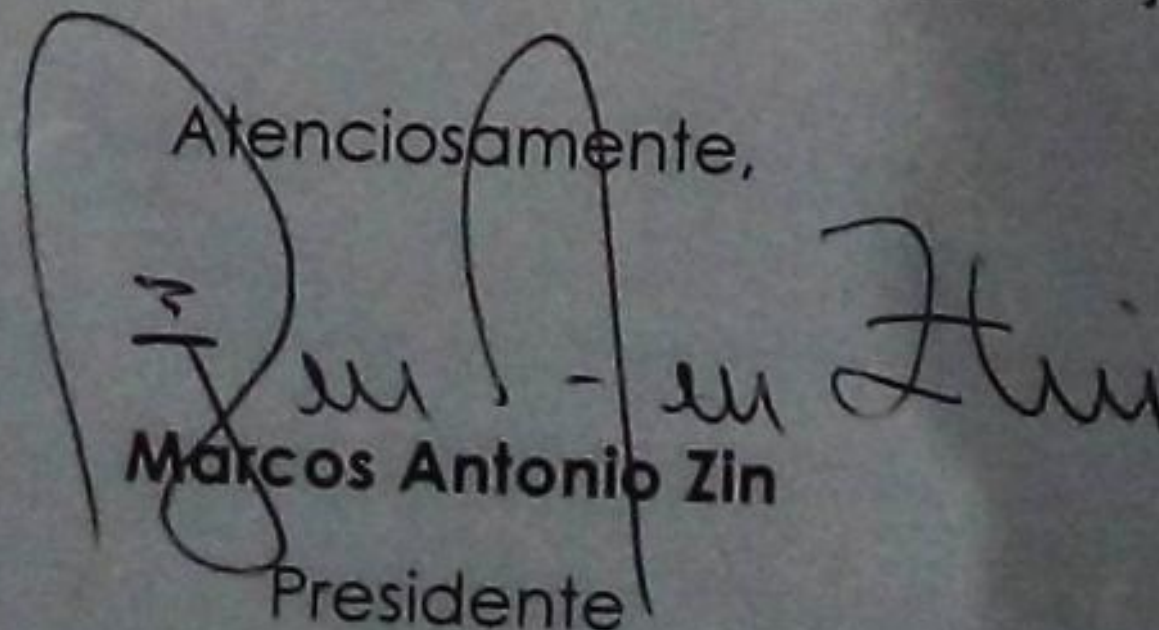 Atenciosamente,
Marcos Antonio Zin
Presidente